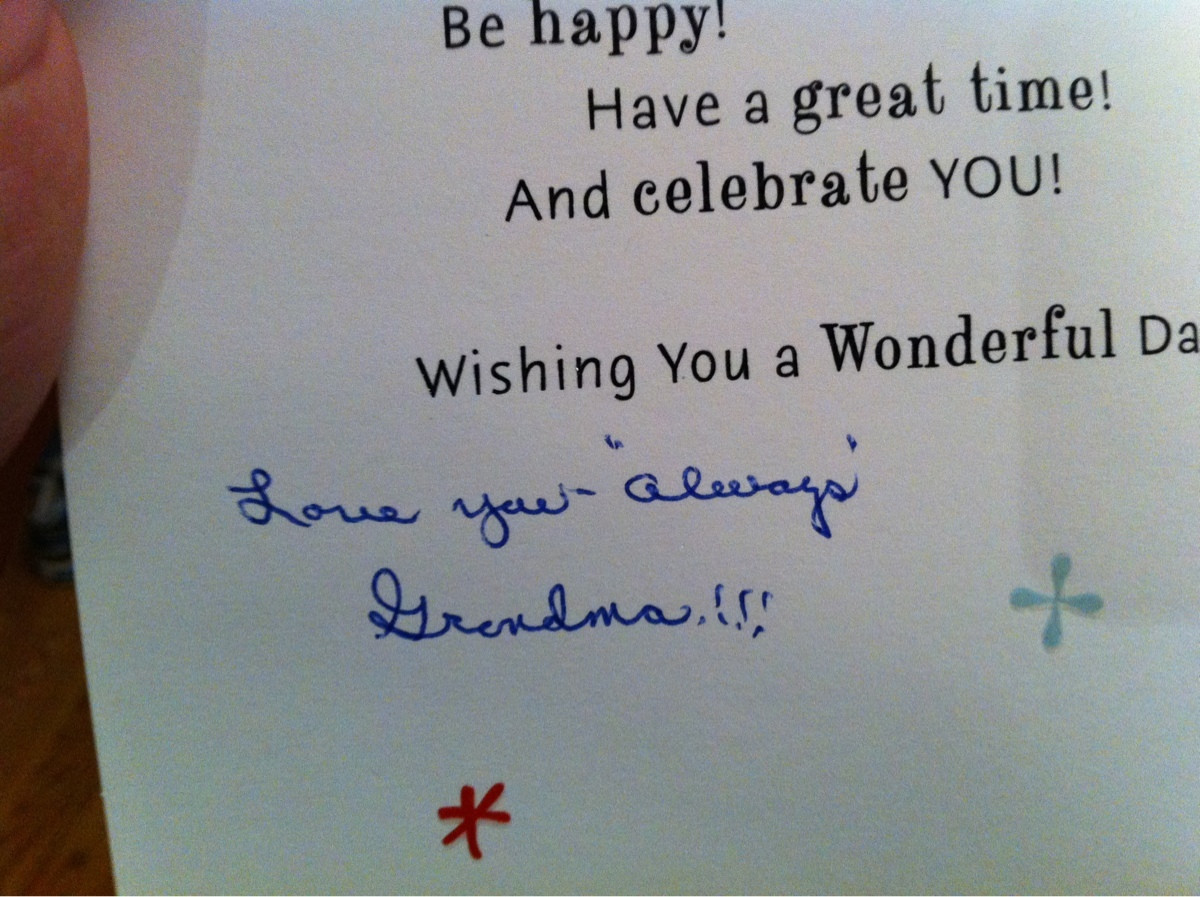 Be happy!
Have a great time!
And celebrate YOU!
Wishing You a Wonderful Da
Love you - "always"
Grandma.!!!